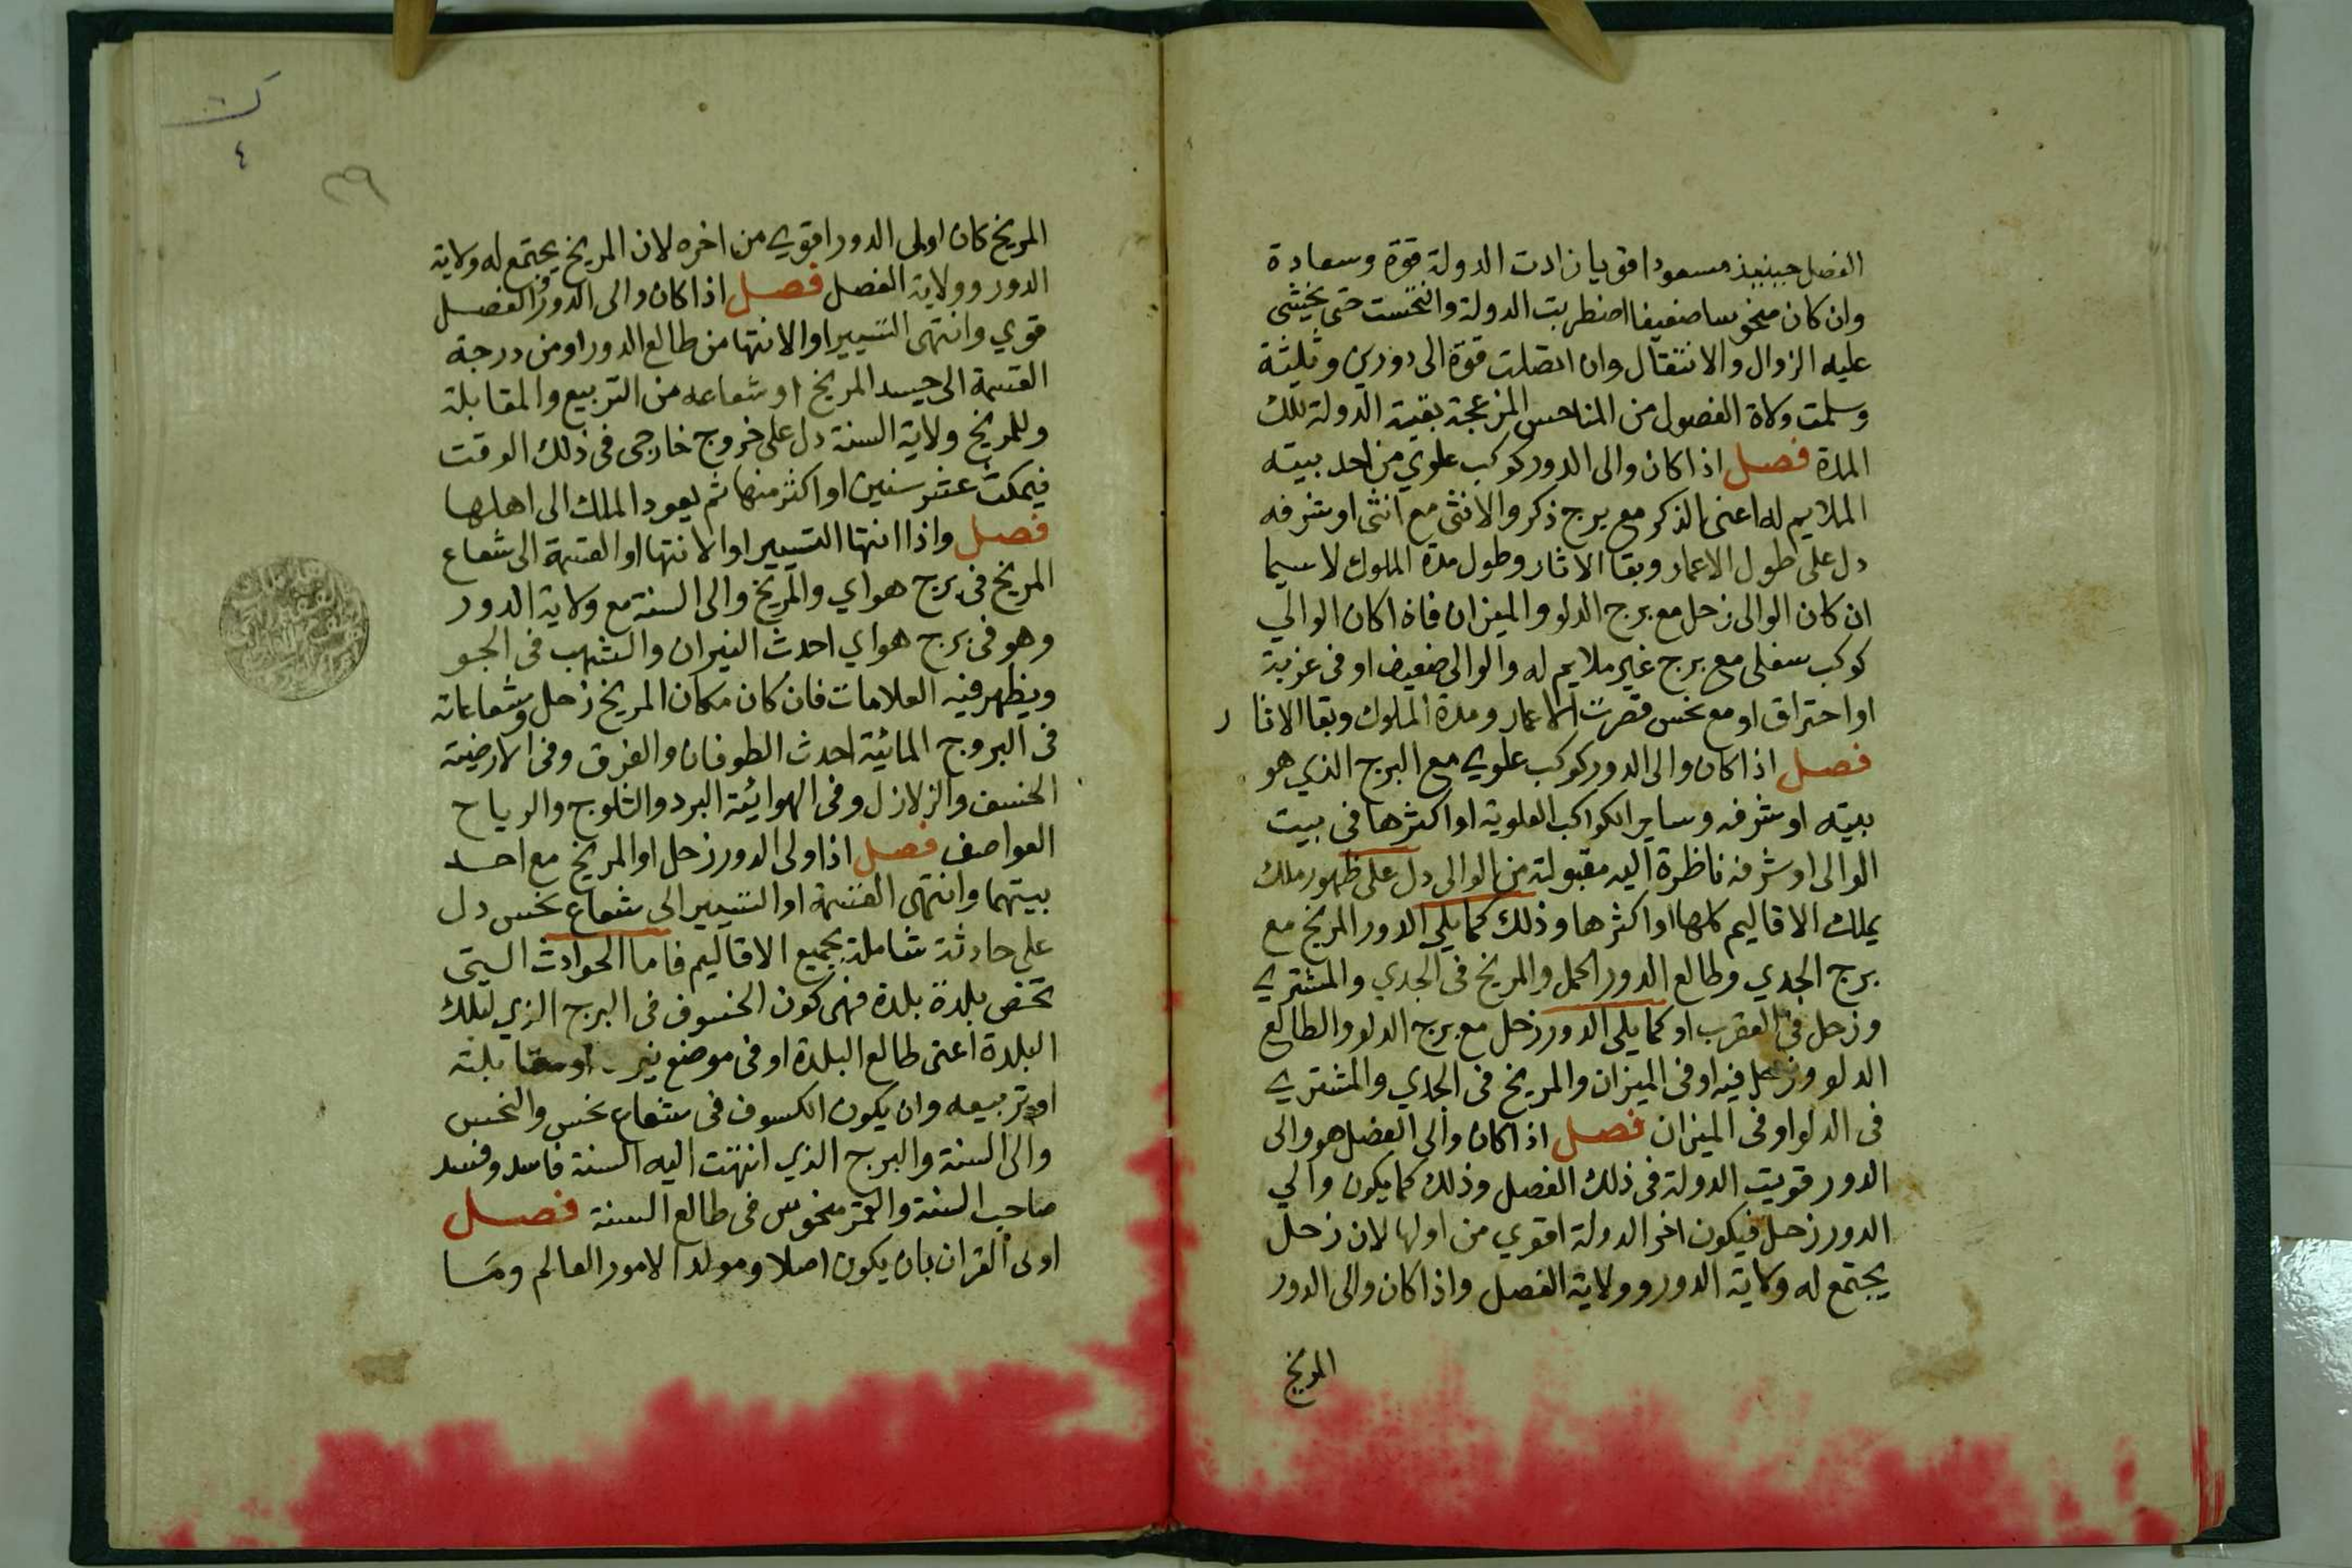 الفصل حينيذ مسعودا قويا زادت الدولة قوة وسعادة
وان كان منحوسا ضعيفا اضطربت الدولة وانتحست حتى يخشى
عليه الزوال والانتقال وان اتصلت قوة الى دورين وثلثة
وسلمت ولاة الفصول من المناحس المزعجة بقيت الدولة تلك
المدة فصل اذا كان والى الدور كوكب علوي من احد بيته
الملايم له اعنى الذكر مع برج ذكر والانثى مع انثى او شرفه
دل على طول الاعمار وبقا الاثار وطول مدة الملوك لاسيما
ان كان الوالى زحل مع برج الدلو والميزان فاذا كان الوالي
كوكب سفلى مع برج غير ملايم له والوالى ضعيف او فى غربة
او احتراق او مع نحس قصرت الاعمار ومدة الملوك وبقا الاثار
فصل اذا كان والى الدور كوكب علوي مع البرج الذي هو
بيته او شرفه وساير الكواكب العلوية او اكثرها فى بيت
الوالى او شرفه ناظرة اليه مقبولة من الوالى دل على ظهور ملك
يملك الاقاليم كلها او اكثرها وذلك كما يلى الدور المريخ مع
برج الجدي وطالع الدور الحمل والمريخ فى الجدي والمشتري
وزحل فى العقرب او كما يلى الدور زحل مع برج الدلو والطالع
الدلو وزحل فيه او فى الميزان والمريخ فى الجدي والمشتري
فى الدلو او فى الميزان فصل اذا كان والى الفصل هو والى
الدور قويت الدولة فى ذلك الفصل وذلك كما يكون والي
الدور زحل فيكون اخر الدولة اقوي من اولها لان زحل
يجتمع له ولاية الدور وولاية الفصل واذا كان والى الدور
المريخ
٤
٣٩
المريخ كان اولى الدور اقوي من اخره لان المريخ يجتمع له ولاية
الدور وولاية الفصل فصل اذا كان والى الدور والفصل
قوي وانتهى التسيير او الانتها من طالع الدور او من درجة
القسمة الى جسد المريخ او شعاعه من التربيع والمقابلة
وللمريخ ولاية السنة دل على خروج خارجى فى ذلك الوقت
فيمكث عشر سنين او اكثر منها ثم يعود الملك الى اهلها
فصل واذا انتها التسيير او الانتها او القسمة الى شعاع
المريخ فى برج هواي والمريخ والى السنة مع ولاية الدور
وهو فى برج هواي احدث النيران والشهب فى الجو
ويظهر فيه العلامات فان كان مكان المريخ زحل وشعاعاته
فى البروج المائية احدث الطوفان والغرق وفى الارضية
الخسف والزلازل وفى الهوائية البرد والثلوج والرياح
العواصف فصل اذا ولى الدور زحل او المريخ مع احد
بيتهما وانتهى القسمة او التسيير الى شعاع نحس دل
على حادثة شاملة بجميع الاقاليم فاما الحوادث التى
تخص بلدة بلدة فهى كون الخسوف فى البرج الذي لتلك
البلدة اعنى طالع البلدة او فى موضع نير او مقابلته
او تربيعه وان يكون الكسوف فى شعاع نحس والنحس
والى السنة والبرج الذي انتهت اليه السنة فاسد وفسد
صاحب السنة والقمر منحوس فى طالع السنة فصل
اولى القران بان يكون اصلا ومولدا لامور العالم وما